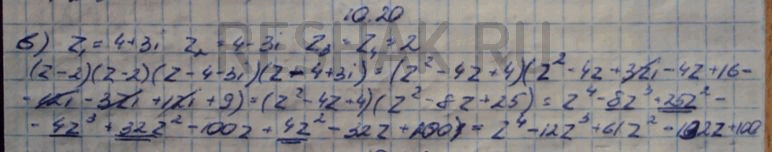 10.20
в) z₁ = 4+3i z₂ = 4-3i z₃ = z₄ = 2
(z-2)(z-2)(z-4-3i)(z-4+3i) = (z²-4z+4)(z²-4z+3zi-4z+16-
-12i-3zi+12i+9) = (z²-4z+4)(z²-8z+25) = z⁴-8z³+25z²-
-4z³+32z²-100z+4z²-32z+100) = z⁴-12z³+61z²-132z+100
RESHAK.RU